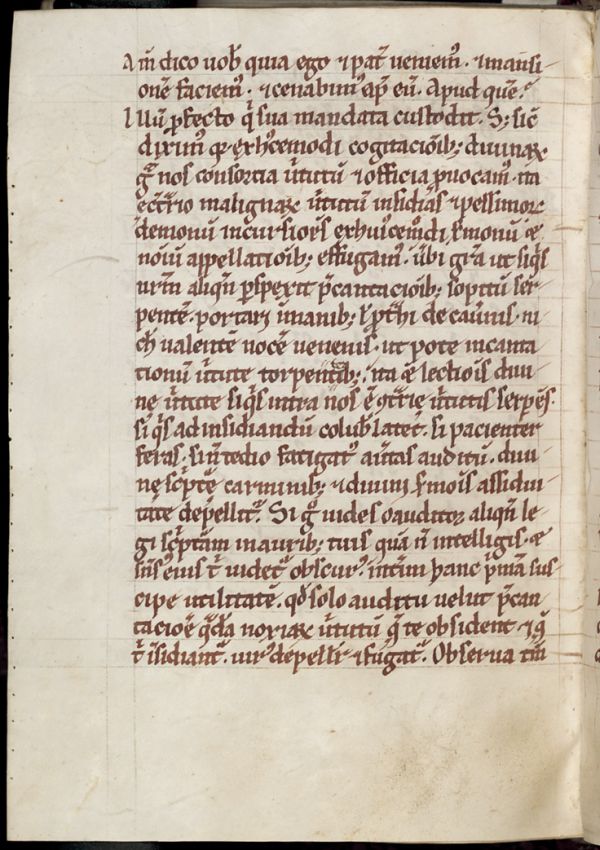 Am̄ dico uob̄ quia ego ⁊ pat̄ ueniem᷒. ⁊ mansi
onē faciem᷒. ⁊ cenabim᷒ ap̄ eū. Apud quē?
Illū ꝓfecto q̄ sua mandata custodit. S; sic̄
dixim᷒ qꝫ ex hui᷒cemodi cogitacōib; diuinaꝝ
g̊ nos consortia ūtutū ⁊ officia ꝓuocam᷒. ita
ecͣrio malignaꝝ ūtutū insidias ⁊ pessimoꝝ
demonū incursiōes ex hui᷒cem̊di sꝫmonū ⁊
nōiū appellatiōib; effugam᷒. ūbi gr̄a ut siq̄s
ur̄m aliqn̄ ꝓspexit p̄cantaciōib; sopitū ser
pentē. portari ī manib; ł ꝓt̄hi de cauīnis. ni
ch̄ ualentē nocē uenenis. ut pote incanta
tionū ūtute torpentib;. ita ⁊ lectiōis diui
nę ūtute siq̄s intra nos ē ꝯt̄rię ūtutis serpēs.
si q̄s ad insidiandū colub̄ latet. si pacienter
feras. si ñ tedio fatigat᷒ auertas auditū. diui
nę sc̄pt̄ę carminib; ⁊ diuini sꝫmōis assidui
tate depellit̄. Si g̊ uides o auditor aliqn̄ le
gi sc̄ptam in aurib; tuis quā ñ intelligis. ⁊
sn̄s ei᷒ t̄ uidet̄ obscur᷒. int̄im hanc p̄mā sus
cipe utilitatē. qd̄ solo auditu uelut p̄can
tacioē q̄da noxiaꝝ ūtutū q̄ te obsident ⁊ q̄
t̄ īsidiant̄. uir᷒ depellit̄ ⁊ fugat̄. Obserua tm̄